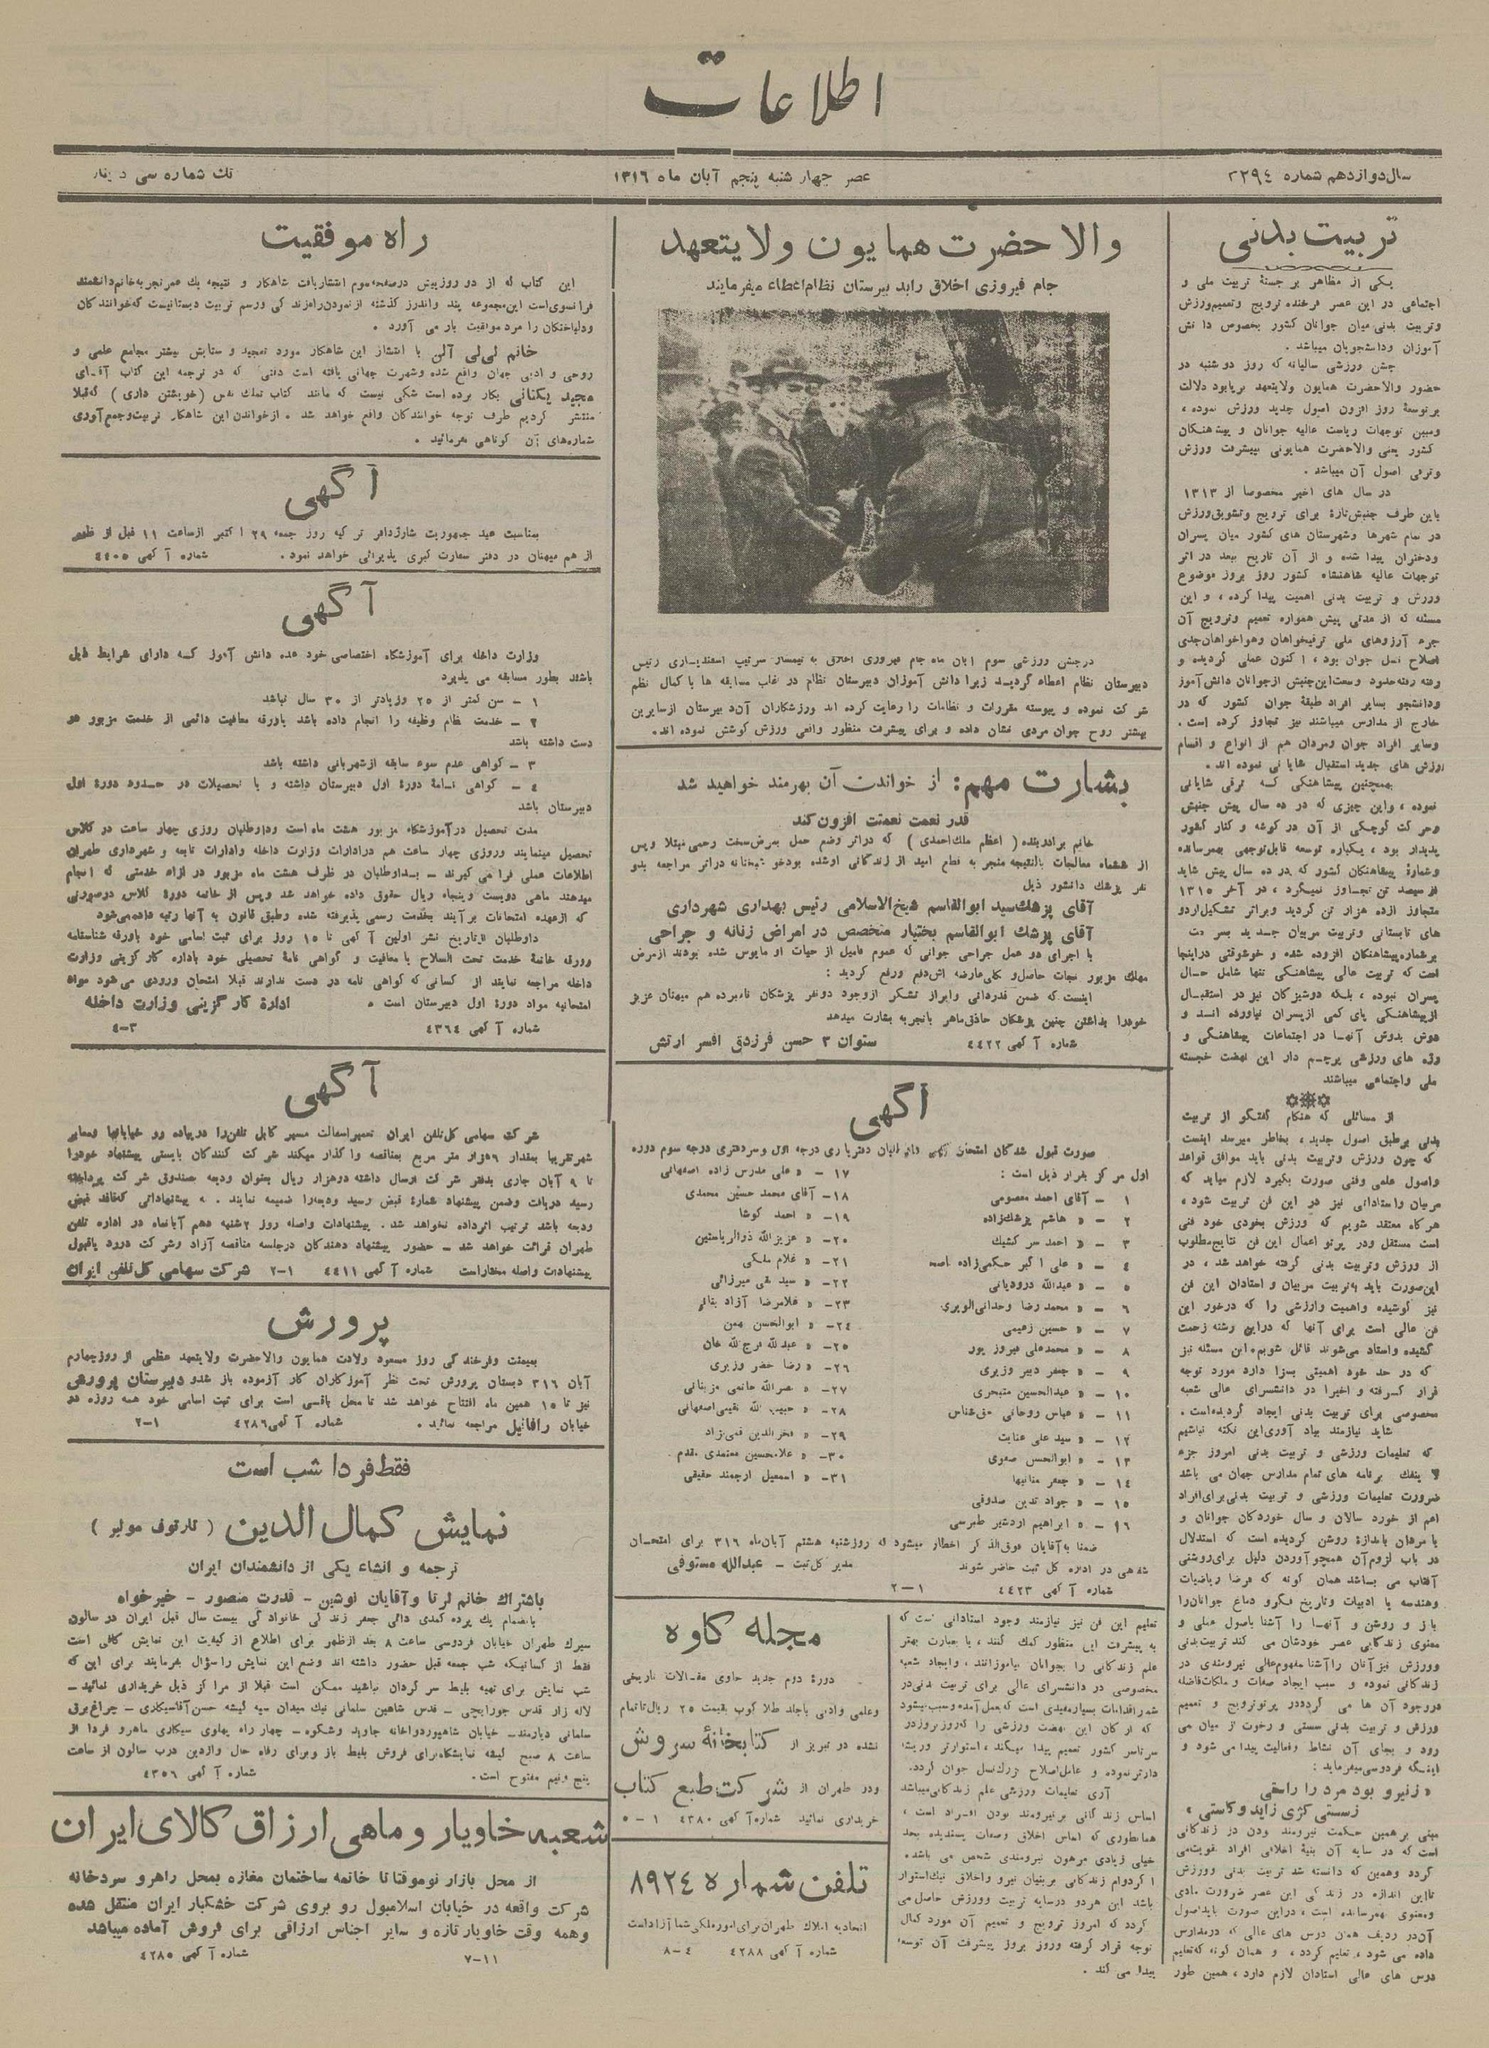 اطلاعات
سال دوازدهم شماره ۳۲۹٤
عصر چهار شنبه پنجم آبان ماه ۱۳۱۶
تك شماره سی دینار
تربیت بدنی
یکی از مظاهر برجستهٔ تربیت ملی و
اجتماعی در این عصر فرخنده ترویج و تعمیم ورزش
و تربیت بدنی میان جوانان کشور بخصوص دانش
آموزان و دانشجویان میباشد .
جشن ورزشی سالیانه که روز دوشنبه در
حضور والاحضرت همایون ولایتعهد برپا بود دلالت
بر توسعهٔ روز افزون اصول جدید ورزش نموده ،
ومبین توجهات ریاست عالیه جوانان و پیشاهنگان
کشور یعنی والاحضرت همایونی بپیشرفت ورزش
و ترقی اصول آن میباشد .
در سال های اخیر مخصوصا از ۱۳۱۳
باین طرف جنبش تازهٔ برای ترویج و تشویق ورزش
در تمام شهرها و شهرستان های کشور میان پسران
ودختران پیدا شده و از آن تاریخ ببعد در اثر
توجهات عالیه شاهنشاه کشور روز بروز موضوع
ورزش و تربیت بدنی اهمیت پیدا کرده ، و این
مسئله که از مدتی پیش همواره تعمیم و ترویج آن
جزء آرزوهای ملی ترقیخواهان و هواخواهان جدی
اصلاح نسل جوان بود ، اکنون عملی گردیده و
رفته رفته حدود وسعت این جنبش از جوانان دانش آموز
ودانشجو بسایر افراد طبقهٔ جوان کشور که در
خارج از مدارس میباشند نیز تجاوز کرده است .
وسایر افراد جوان ومردان هم از انواع و اقسام
ورزش های جدید استقبال شایانی نموده اند .
بهمچنین پیشاهنگی که ترقی شایانی
نموده ، واین چیزی که در ده سال پیش جنبش
وحرکت کوچکی از آن در گوشه و کنار کشور
پدیدار بود ، یکباره توسعه قابل توجهی بهمرسانده
وشمارهٔ پیشاهنگان کشور که در ده سال پیش شاید
از سیصد تن تجاوز نمیکرد ، در آخر ۱۳۱۵
متجاوز ازده هزار تن گردید وبراثر تشکیل اردو
های تابستانی وتربیت مربیان جدید بسرعت
بر شماره پیشاهنگان افزوده شده و خوشوقتی در اینجا
است که تربیت عالی پیشاهنگی تنها شامل حال
پسران نبوده ، بلکه دوشیزگان نیز در استقبال
از پیشاهنگی پای کمی از پسران نیاورده اند و
دوش بدوش آنها در اجتماعات پیشاهنگی و
رژه های ورزشی پرچم دار این نهضت خجسته
ملی واجتماعی میباشند
از مسائلی که هنگام گفتگو از تربیت
بدنی بر طبق اصول جدید ، بخاطر میرسد اینست
که چون ورزش وتربیت بدنی باید موافق قواعد
واصول علمی وفنی صورت بگیرد لازم میاید که
مربیان واستادانی نیز در این فن تربیت شود ،
هرگاه معتقد شویم که ورزش بخودی خود فنی
است مستقل ودر پرتو اعمال این فن نتایج مطلوب
از ورزش وتربیت بدنی گرفته خواهد شد ، در
این صورت باید به تربیت مربیان و استادان این فن
نیز کوشیده واهمیت وارزشی را که درخور این
فن عالی است برای آنها که در این رشته زحمت
کشیده واستاد میشوند قائل شویم . این مسئله نیز
که در حد خود اهمیتی بسزا دارد مورد توجه
قرار گرفته و اخیرا در دانشسرای عالی شعبه
مخصوصی برای تربیت بدنی ایجاد گردیده است .
شاید نیازمند بیاد آوری این نکته نباشیم
که تعلیمات ورزشی و تربیت بدنی امروز جزء
لا ینفك برنامه های تمام مدارس جهان می باشد
ضرورت تعلیمات ورزشی و تربیت بدنی برای افراد
اعم از خورد سالان و سال خوردگان جوانان و
یا مردان باندازهٔ روشن گردیده است که استدلال
در باب لزوم آن همچو آوردن دلیل برای روشنی
آفتاب می باشد همان گونه که فرضا ریاضیات
وهندسه یا ادبیات وتاریخ فکر و دماغ جوانان را
باز و روشن و آنها را آشنا باصول عملی و
معنوی زندگانی عصر خودشان می کند تربیت بدنی
وورزش نیز آنان را آشنا بمفهوم عالی نیرومندی در
زندگانی نموده و سبب ایجاد صفات و ملکات فاضله
در وجود آن ها می گردد در پرتو ترویج و تعمیم
ورزش و تربیت بدنی سستی و رخوت از میان می
رود و بجای آن نشاط وفعالیت پیدا می شود و
اینکه فردوسی میفرماید :
« زنیرو بود مرد را راستی
زسستی کژی زاید و کاستی »
مبنی بر همین حکمت نیرومند بودن در زندگانی
است که در سایه آن بنیهٔ اخلاقی افراد تقویت می
گردد وهمین که دانسته شد تربیت بدنی وورزش
تا این اندازه در زندگی این عصر ضرورت مادی
ومعنوی بهمرسانده است ، در این صورت باید اصول
آن در ردیف همان درس های عالی که در مدارس
داده می شود ، تعلیم گردد ، و همان گونه که تعلیم
درس های عالی استادان لازم دارد ، همین طور
تعلیم این فن نیز نیازمند وجود استادانی است که
به پیشرفت این منظور کمك کنند ، یا بعبارت بهتر
علم زندگانی را بجوانان بیاموزانند ، وایجاد شعبه
مخصوصی در دانشسرای عالی برای تربیت بدنی در
شمار اقدامات بسیار مفیدی است که بعمل آمده و سبب میشود
که ارکان این نهضت ورزشی را که روز بروز در
سرتاسر کشور تعمیم پیدا میکند ، استوارتر و ریشه
دارتر نموده و عامل اصلاح بزرگ نسل جوان گردد .
آری تعلیمات ورزشی علم زندگانی میباشد
اساس زندگانی بر نیرومند بودن افراد است ،
همانطوری که اساس اخلاق وصفات پسندیده بحد
خیلی زیادی مرهون نیرومندی شخص می باشد .
اگر دوام زندگانی بر بنیان نیرو و اخلاق نیك استوار
باشد این هر دو در سایه تربیت وورزش حاصل می
گردد که امروز ترویج و تعمیم آن مورد کمال
توجه قرار گرفته وروز بروز پیشرفت آن توسعه
پیدا می کند .
والا حضرت همایون ولایتعهد
جام فیروزی اخلاق را بدبیرستان نظام اعطاء میفرمایند
در جشن ورزشی سوم آبان ماه جام فیروزی اخلاق به تیمسار سرتیپ اسفندیاری رئیس
دبیرستان نظام اعطاء گردید زیرا دانش آموزان دبیرستان نظام در غالب مسابقه ها با کمال نظم
شرکت نموده و پیوسته مقررات و نظامات را رعایت کرده اند ورزشکاران آن دبیرستان از سایرین
بیشتر روح جوان مردی نشان داده و برای پیشرفت منظور واقعی ورزش کوشش نموده اند .
بشارت مهم : از خواندن آن بهرمند خواهید شد
قدر نعمت نعمتت افزون کند
خانم برادر بنده ( اعظم ملك احمدی ) که در اثر وضع حمل بمرض سخت رحمی مبتلا و پس
از معالجات بالنتیجه منجر به قطع امید از زندگانی او شده بود خوشبختانه در اثر مراجعه بدو
نفر پزشك دانشور ذیل
آقای پزشك سید ابوالقاسم شیخ الاسلامی رئیس بهداری شهرداری
آقای پزشك ابوالقاسم بختیار متخصص در امراض زنانه و جراحی
با اجرای دو عمل جراحی جوانی که عموم فامیل از حیات او مایوس شده بودند از مرض
مهلك مزبور نجات حاصل و کلی عارضه اش دفع ورفع گردید :
اینست که ضمن قدردانی وابراز تشکر از وجود دو نفر پزشکان نامبرده هم میهنان عزیز
خود را بداشتن چنین پزشکان حاذق ماهر با تجربه بشارت میدهد
شماره آگهی ٤٤۲۲
ستوان ۳ حسن فرزدق افسر ارتش
آگهی
صورت قبول شدگان امتحان کتبی داوطلبان دفتریاری درجه اول و سردفتری درجه سوم دوره
اول مرکز بقرار ذیل است :
۱ – آقای احمد معصومی
۲ – « هاشم پزشك زاده
۳ – « احمد سر کشیك
٤ – « علی اکبر حکمی زاده
۵ – « عبدالله درودیانی
۶ – « محمد رضا وحدانی الویری
۷ – « حسین زعیمی
۸ – « محمد علی فیروز پور
۹ – « جعفر دبیر وزیری
۱۰ – « عبدالحسین متبحری
۱۱ – « عباس روحانی حق شناس
۱۲ – « سید علی عنایت
۱۳ – « ابوالحسن صفوی
۱٤ – « جعفر
۱۵ – « جواد تدین صدوقی
۱۶ – « ابراهیم اردشیر طبرسی
۱۷ – « علی مدرس زاده اصفهانی
۱۸ – آقای محمد حسین محمدی
۱۹ – « احمد کوشا
۲۰ – « عزیز الله ذوالریاستین
۲۱ – « غلام ملکی
۲۲ – « سید تقی میرزائی
۲۳ – « غلامرضا آزاد
۲٤ – « ابوالحسن بهمن
۲۵ – « عبدالله فرج الله خان
۲۶ – « رضا خضر وزیری
۲۷ – « نصرالله حاتمی مزینانی
۲۸ – « حبیب الله نفیسی اصفهانی
۲۹ – « فخرالدین قمی نژاد
۳۰ – « غلامحسین معتمدی مقدم
۳۱ – « اسمعیل ارجمند حقیقی
ضمنا به آقایان فوق الذکر اخطار میشود که روز شنبه هشتم آبان ماه ۳۱۶ برای امتحان
شفاهی در اداره کل ثبت حاضر شوند
مدیر کل ثبت – عبدالله مستوفی
شماره آگهی ٤٤۲۳
۲–۱
مجله کاوه
دورهٔ دوم جدید حاوی مقالات تاریخی
وعلمی وادبی باجلد طلا کوب بقیمت ۲۵ ریال تا تمام
نشده در تبریز از کتابخانهٔ سروش
ودر طهران از شرکت طبع کتاب
خریداری نمائید شماره آگهی ٤۳۸۰ ۱–۵
تلفن شماره ۸۹۲٤
اتحادیه املاك طهران برای امور ملکی شما آزاد است
شماره آگهی ٤۲۸۸ ٤–۸
راه موفقیت
این کتاب که از دو روز پیش در صفحه سوم انتشار یافت شاهکار و نتیجه یك عمر تجربه خانم دانشمند
فرانسوی است این مجموعه پند واندرز گذشته از نمودن راه زندگی ورسم تربیت دبستانیست که خوانندگان
ودلباختگان را مرد موفقیت بار می آورد .
خانم لی لی آلن با انتشار این شاهکار مورد تمجید و ستایش بیشتر مجامع علمی و
روحی و ادبی جهان واقع شده وشهرت جهانی یافته است دقتی که در ترجمه این کتاب آقای
مجید یکتائی بکار برده است شکی نیست که مانند کتاب تملك نفس ( خویشتن داری ) که قبلا
منتشر کردیم طرف توجه خوانندگان واقع خواهد شد . از خواندن این شاهکار تربیت وجمع آوری
شماره های آن کوتاهی نفرمائید .
آگهی
بمناسبت عید جمهوریت شارژدافر ترکیه روز جمعه ۲۹ اکتبر از ساعت ۱۱ قبل از ظهر
از هم میهنان در دفتر سفارت کبری پذیرائی خواهد نمود . شماره آگهی ٤٤۰۵
آگهی
وزارت داخله برای آموزشگاه اختصاصی خود عده دانش آموز که دارای شرایط ذیل
باشند بطور مسابقه می پذیرد
۱ – سن کمتر از ۲۵ وزیادتر از ۳۰ سال نباشد
۲ – خدمت نظام وظیفه را انجام داده باشد یا ورقه معافیت دائمی از خدمت مزبور در
دست داشته باشد
۳ – گواهی عدم سوء سابقه از شهربانی داشته باشد
٤ – گواهی نامهٔ دورهٔ اول دبیرستان داشته و یا تحصیلات در حدود دورهٔ اول
دبیرستان باشد
مدت تحصیل در آموزشگاه مزبور هشت ماه است وداوطلبان روزی چهار ساعت در کلاس
تحصیل مینمایند وروزی چهار ساعت هم در ادارات وزارت داخله وادارات تابعه و شهرداری طهران
اطلاعات عملی فرا می گیرند – بداوطلبان در ظرف هشت ماه مزبور در ازاء خدمتی که انجام
میدهند ماهی دویست و پنجاه ریال حقوق داده خواهد شد و پس از خاتمه دورهٔ کلاس در صورتی
که از عهده امتحانات برآیند بخدمت رسمی پذیرفته شده وطبق قانون به آنها رتبه داده می شود
داوطلبان از تاریخ نشر اولین آگهی تا ۱۵ روز برای ثبت اسامی خود با ورقه شناسنامه
وورقه خاتمهٔ خدمت تحت السلاح یا معافیت و گواهی نامهٔ تحصیلی خود باداره کارگزینی وزارت
داخله مراجعه نمایند از کسانی که گواهی نامه در دست ندارند قبلا امتحان ورودی می شود مواد
امتحانیه مواد دورهٔ اول دبیرستان است . اداره کار گزینی وزارت داخله
شماره آگهی ٤۳۶٤ ۳–٤
آگهی
شرکت سهامی کل تلفن ایران تعمیر اسفالت مسیر کابل تلفن را در پیاده رو خیابانها ومعابر
شهر تقریبا بمقدار متر مربع بمناقصه واگذار میکند شرکت کنندگان بایستی پیشنهاد خود را
تا ۹ آبان جاری بدفتر شرکت ارسال داشته دو هزار ریال بعنوان ودیعه صندوق شرکت پرداخته
رسید دریافت وضمن پیشنهاد شمارهٔ قبض رسید ودیعه را ضمیمه نمایند . به پیشنهاداتی که فاقد قبض
ودیعه باشد ترتیب اثر داده نخواهد شد . پیشنهادات واصله روز ۲ شنبه دهم آبانماه در اداره تلفن
طهران قرائت خواهد شد – حضور پیشنهاد دهندگان در جلسه مناقصه آزاد وشرکت در رد یا قبول
پیشنهادات واصله مختار است شماره آگهی ٤٤۱۱ ۲–۱ شرکت سهامی کل تلفن ایران
پرورش
بمیمنت وفرخندگی روز مسعود ولادت همایون والاحضرت ولایتعهد عظمی از روز چهارم
آبان ۳۱۶ دبستان پرورش تحت نظر آموزکاران کار آزموده باز شد و دبیرستان پرورش
نیز تا ۱۵ همین ماه افتتاح خواهد شد تا محل باقی است برای ثبت اسامی خود همه روزه در
خیابان رافائیل مراجعه نمائید . شماره آگهی ٤۲۸۶ ۲–۱
فقط فردا شب است
نمایش کمال الدین ( تارتوف مولیر )
ترجمه و انشاء یکی از دانشمندان ایران
باشتراك خانم لرتا وآقایان نوشین – قدرت منصور – خیرخواه
بانضمام یك پرده کمدی دائی جعفر زندگی خانوادگی بیست سال قبل ایران در سالون
سیرك طهران خیابان فردوسی ساعت ۸ بعد از ظهر برای اطلاع از کیفیت این نمایش کافی است
فقط از کسانیکه شب جمعه قبل حضور داشته اند وضع این نمایش را سؤال بفرمایند برای این که
شب نمایش برای تهیه بلیط سر گردان نباشید ممکن است قبلا از مراکز ذیل خریداری نمائید –
لاله زار قدس جورابچی – قدس شاهین سلمانی نیك میدان سپه گیشه حسن آقا سیگاری – چراغ برق
سلمانی دیارمند – خیابان شاهپور دواخانه جاوید وشکوه – چهار راه پهلوی سیگاری ماهر و فردا از
ساعت ۸ صبح گیشه نمایشگاه برای فروش بلیط باز وبرای رفاه حال واردین درب سالون از ساعت
پنج ونیم مفتوح است . شماره آگهی ٤۳۵۶
شعبه خاویار و ماهی ارزاق کالای ایران
از محل بازار نو موقتا تا خاتمه ساختمان مغازه بمحل راهرو سردخانه
شرکت واقعه در خیابان اسلامبول رو بروی شرکت خشکبار ایران منتقل شده
وهمه وقت خاویار تازه و سایر اجناس ارزاقی برای فروش آماده میباشد
شماره آگهی ٤۲۸۵
۱۱–۷